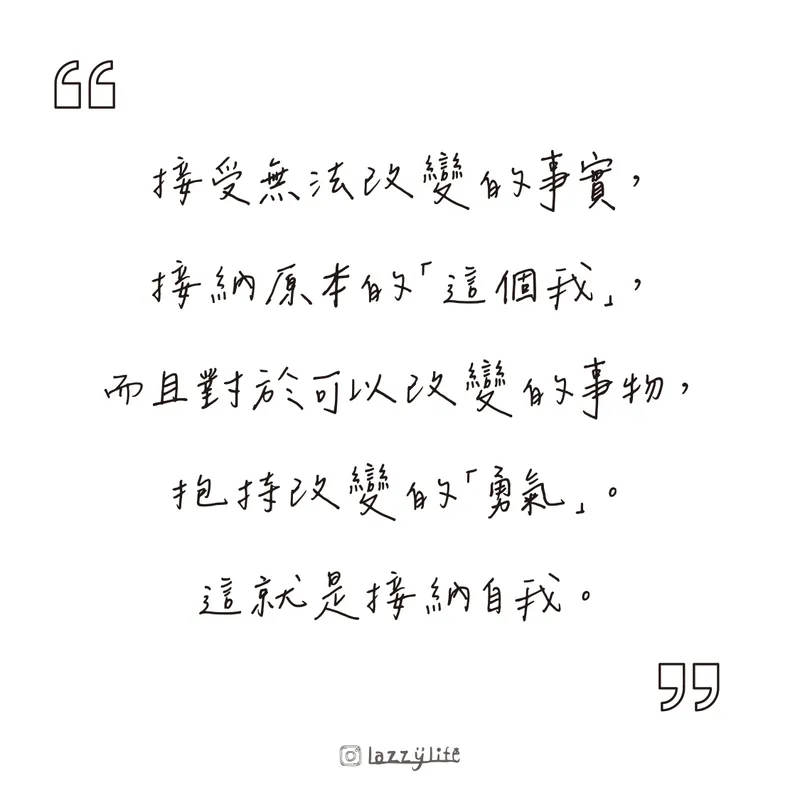 接受無法改變的事實，
接納原本的「這個我」，
而且對於可以改變的事物，
抱持改變的「勇氣」。
這就是接納自我。
lazzylife